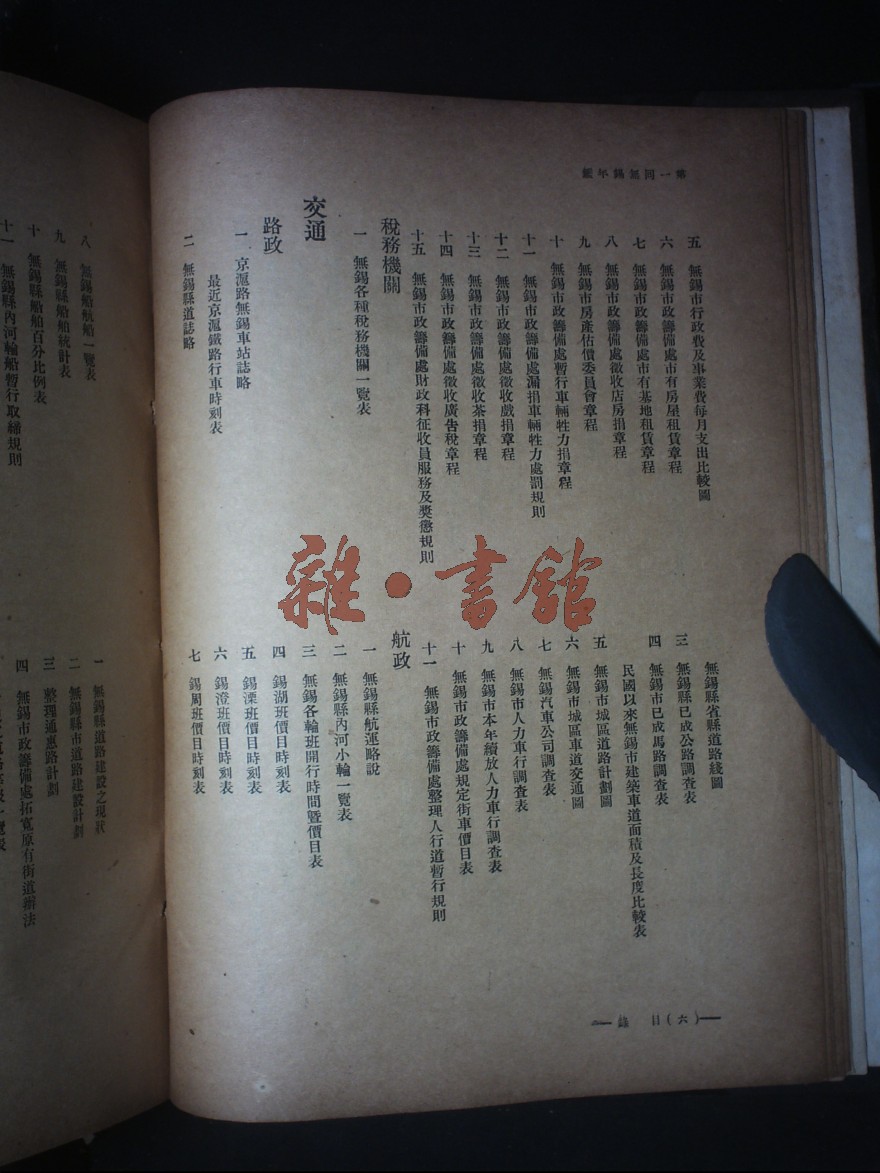 第一回無錫年鑑
五　無錫市行政費及事業費每月支出比較圖
六　無錫市政籌備處市有房屋租賃章程
七　無錫市政籌備處市有基地租賃章程
八　無錫市政籌備處徵收店房捐章程
九　無錫市房產估價委員會章程
十　無錫市政籌備處暫行車輛牲力捐章程
十一　無錫市政籌備處漏捐車輛牲力處罰規則
十二　無錫市政籌備處徵收戲捐章程
十三　無錫市政籌備處徵收茶捐章程
十四　無錫市政籌備處徵收廣告稅章程
十五　無錫市政籌備處財政科征收員服務及獎懲規則
稅務機關
一　無錫各種稅務機關一覽表
交通
路政
一　京滬路無錫車站誌略
最近京滬鐵路行車時刻表
二　無錫縣道誌略
無錫縣省縣道路綫圖
三　無錫縣已成公路調查表
四　無錫市已成馬路調查表
民國以來無錫市建築車道面積及長度比較表
五　無錫市城區道路計劃圖
六　無錫市城區車道交通圖
七　無錫汽車公司調查表
八　無錫市人力車行調查表
九　無錫市本年續放人力車行調查表
十　無錫市政籌備處規定街車價目表
十一　無錫市政籌備處整理人行道暫行規則
航政
一　無錫縣航運略說
二　無錫縣內河小輪一覽表
三　無錫各輪班開行時間暨價目表
四　錫湖班價目時刻表
五　錫溧班價目時刻表
六　錫澄班價目時刻表
七　錫周班價目時刻表
—目(六)錄—
八　無錫船航船一覽表
九　無錫縣船舶統計表
十　無錫縣船舶百分比例表
十一　無錫縣內河輪船暫行取締規則
一　無錫縣道路建設之現狀
二　無錫縣市道路建設計劃
三　整理通惠路計劃
四　無錫市政籌備處拓寬原有街道辦法
雜·書館